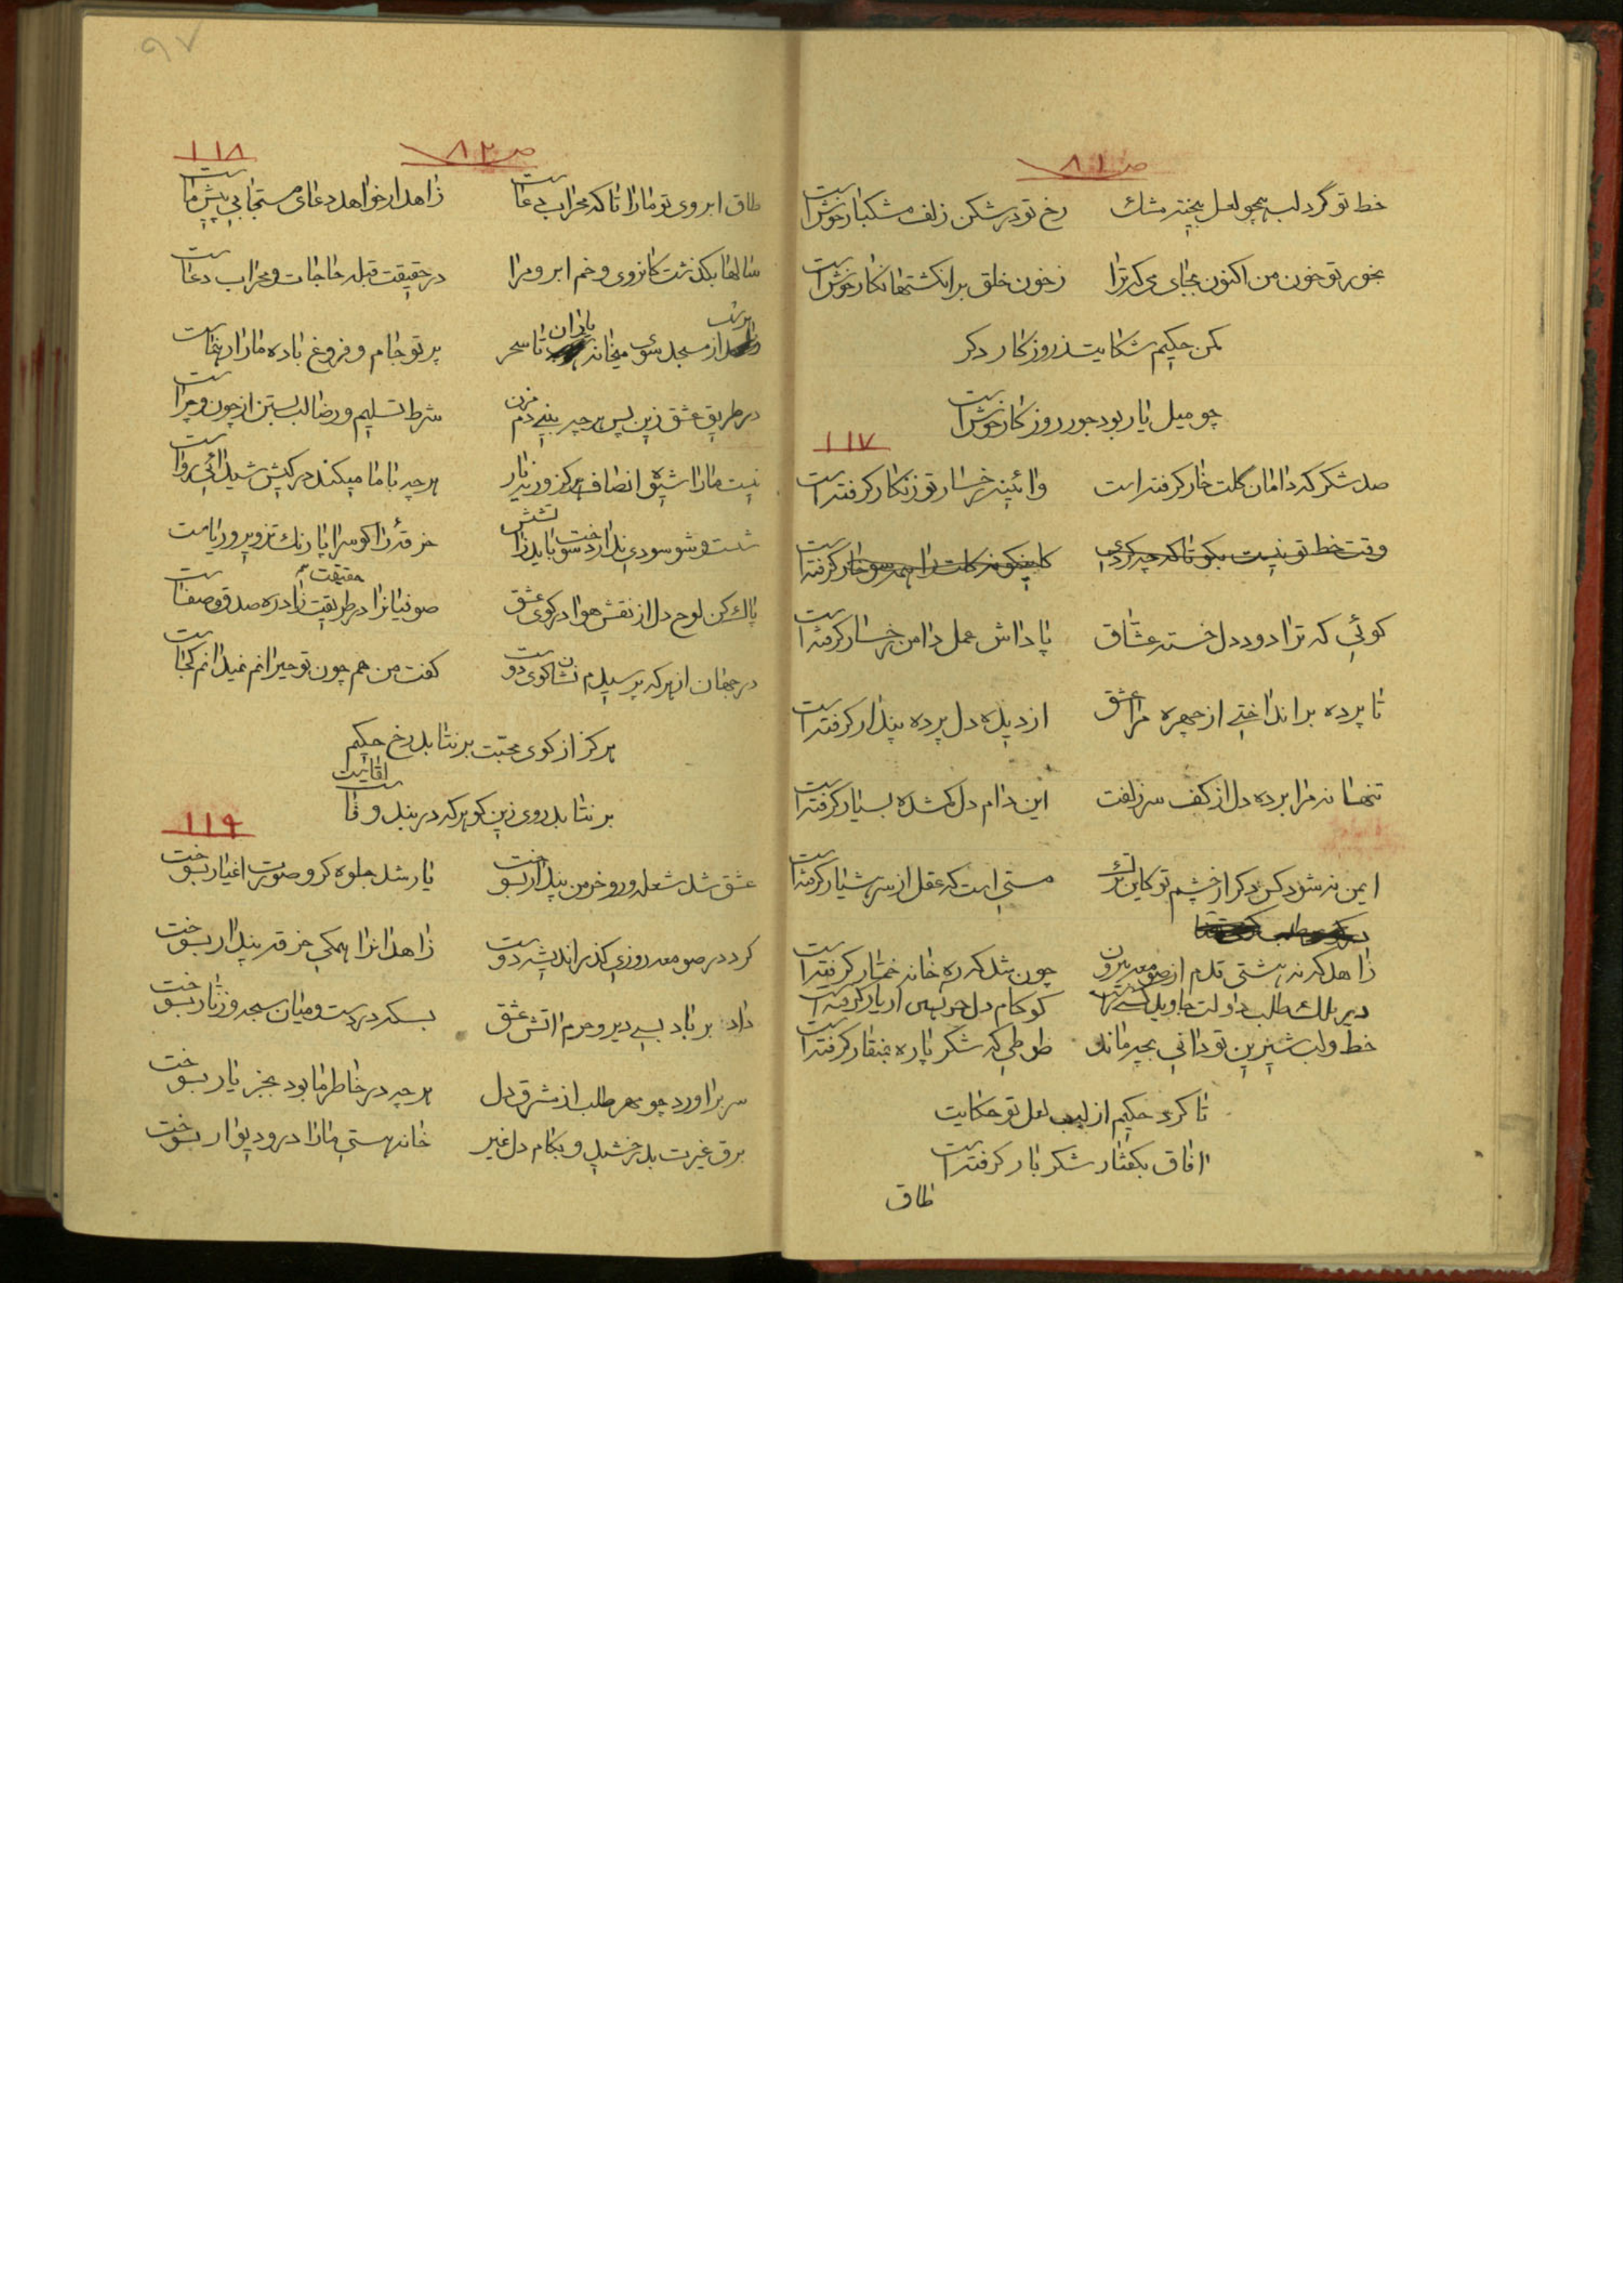 ص ۸۱
خط تو گرد لب همچو لعل بیخته مشک رخ تو در شکن زلف مشکبار خوش است
بخور تو خون من اکنون بجای می که ترا ز خون خلق بر انکشتها نکار خوش است
مکن حکیم شکایت ز روزکار دکر
چو میل یار بود جور روزکار خوش است
۱۱۷
صد شکر که دامان کلت خار کرفته است وائینه رخسار تو زنکار کرفته است
وقت خط تو نیست بکو تا که چه کردی کاینکونه کلت را همه سو خار کرفته است
کوئی که ترا دود دل خسته عشاق پاداش عمل دامن رخسار کرفته است
تا پرده بر انداختی از چهره مرا عشق از دیده دل پرده پندار کرفته است
تنها نه مرا برده دل از کف سر زلفت این دام دل کمشده بسیار کرفته است
ایمن نه شود کس دکر از چشم تو کاین ترک مستی است که عقل از سر هشیار کرفته است
زاهد که نه هشتی قدم از صومعه بیرون چون شد که ره خانه خمار کرفته است
خط و لب شیرین تو دانی بچه ماند طوطی که شکر پاره بمنقار کرفته است
تا کرد حکیم از لب لعل تو حکایت
افاق بکفتار شکر بار کرفته است
طاق
۹۷
ص ۸۲
۱۱۸
طاق ابروی تو مارا تا که محراب دعاست زاهد ار خواهد دعای مستجابی پیش ماست
سالها بکذشت کانروی و خم ابرو مرا در حقیقت قبله حاجات و محراب دعاست
از مسجد سوی میخانه یاران تا سحر پرتو جام و فروغ باده مارا رهنماست
در طریق عشق زین پس هرچه بینی دم مزن شرط تسلیم و رضا لب بستن از چون و چراست
نیست مارا شیوه انصاف هرکز ور نه یار هرچه با ما میکند در کیش شیدائی رواست
شست و شو سودی ندارد سوخت باید زاتشش خرقه را کو سراپا رنک تزویر و ریاست
پاک کن لوح دل از نقش هوا در کوی عشق صوفیانرا در طریقت حقیقت زاد ره صدق و صفاست
در جهان از هرکه پرسیدم نشان کوی دوست کفت من هم چون تو حیرانم نمیدانم کجاست
هرکز از کوی محبت بر نتابد رخ حکیم
بر نتابد روی زین کو هرکه در بند وفاست
۱۱۹
عشق شد شعله ور و خرمن پندار بسوخت یار شد جلوه کر و صورت اغیار بسوخت
کرد در صومعه روزی کذر اندیشه دوست زاهدانرا همکی خرقه پندار بسوخت
داد بر باد بسی دیر و حرم اتش عشق بسکه در دست و میان سبحه و زنار بسوخت
سر براورد چو مهر طلب از مشرق دل هرچه در خاطر ما بود بجز یار بسوخت
برق غیرت بدرخشید و بکام دل غیر خانه هستی مارا در و دیوار بسوخت